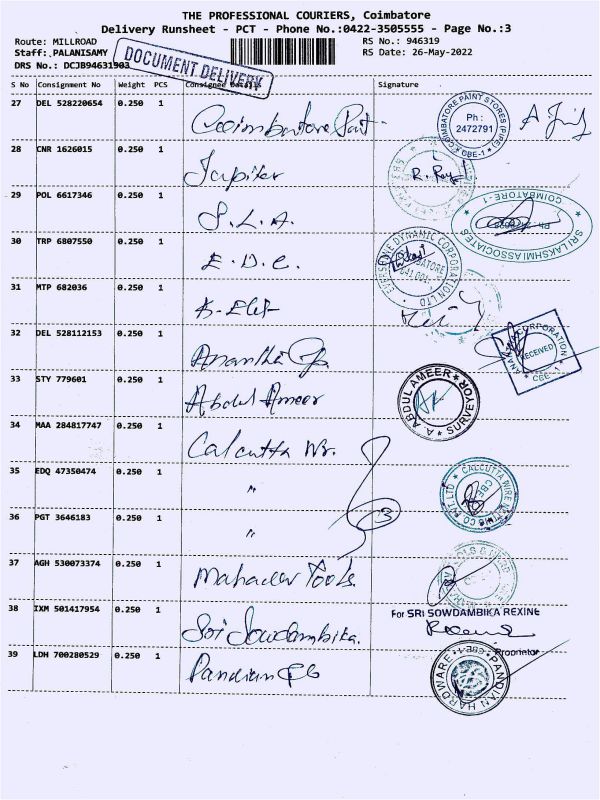 THE PROFESSIONAL COURIERS, Coimbatore
Delivery Runsheet - PCT - Phone No.:0422-3505555 - Page No.:3
Route: MILLROAD RS No.: 946319
Staff: PALANISAMY RS Date: 26-May-2022
DRS No.: DCJB94631903
DOCUMENT DELIVERY
S No Consignment No Weight PCS Consignee Details Signature
27 DEL 528220654 0.250 1 Coimbatore Paint
COIMBATORE PAINT STORES (PIPE) Ph : 2472791 CBE-1
28 CNR 1626015 0.250 1 Jupiter
29 POL 6617346 0.250 1 S.L.A.
SRI LAKSHMI ASSOCIATES COIMBATORE-1
30 TRP 6807550 0.250 1 E.D.C.
DYNAMIC CORPORATION COIMBATORE 641 001
31 MTP 682036 0.250 1
32 DEL 528112153 0.250 1 Anantha
CORPORATION RECEIVED CBE - 1
33 STY 779601 0.250 1 Abdul Ameer
A. ABDUL AMEER SURVEYOR
34 MAA 284817747 0.250 1 Calcutta Wr.
35 EDQ 47350474 0.250 1 "
CALCUTTA WIRE CO PVT. LTD CBE
36 PGT 3646183 0.250 1 " 3
37 AGH 530073374 0.250 1 Mahadev Tools
38 IXM 501417954 0.250 1 Sri Sowdambika.
For SRI SOWDAMBIKA REXINE
Proprietor
39 LDH 700280529 0.250 1 Pandian
PANDIAN HARDWARE CBE-1